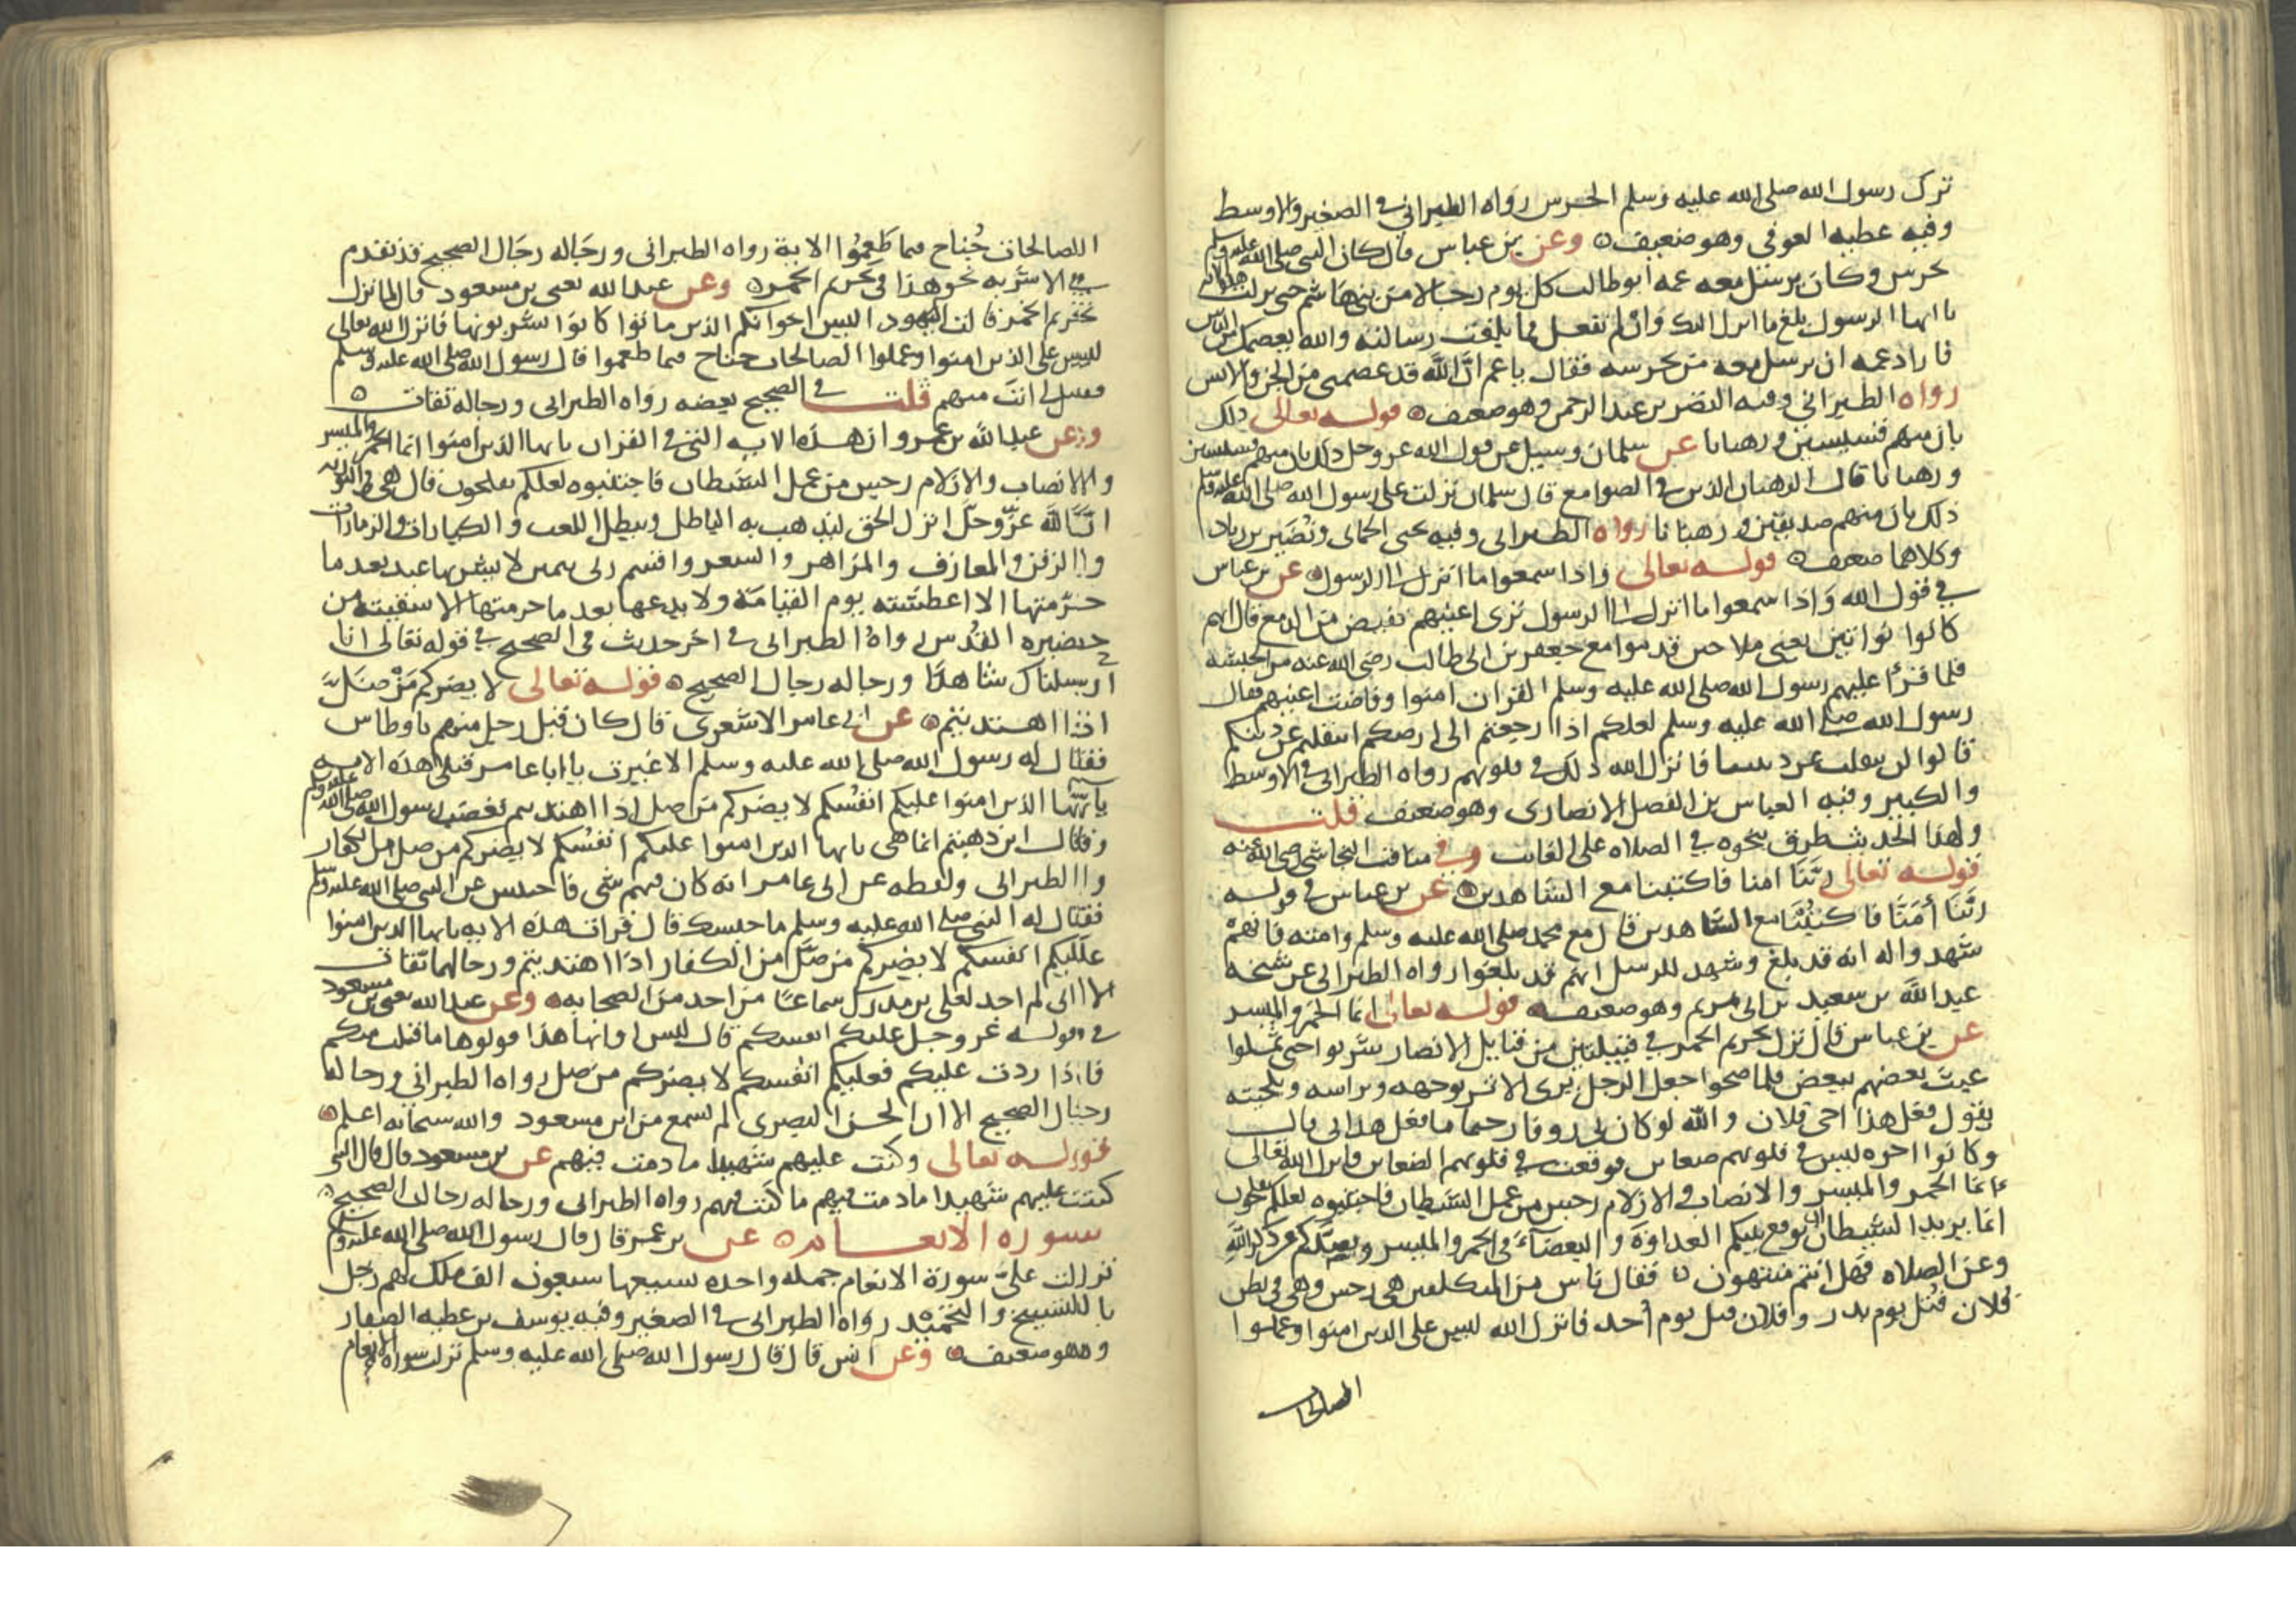 ترك رسول الله صلى الله عليه وسلم الحرس رواه الطبراني في الصغير والاوسط
وفيه عطيه العوفي وهو ضعيف وعن بن عباس قال كان النبي صلى الله عليه وسلم
يحرس وكان يرسل معه عمه ابو طالب كل يوم رجالا من بني هاشم حتى نزلت هذه الايه
يا ايها الرسول بلغ ما انزل اليك وان لم تفعل فما بلغت رسالته والله يعصمك من الناس
فاراد عمه ان يرسل معه من يحرسه فقال يا عم ان الله قد عصمني من الجن والانس
رواه الطبراني وفيه النضر بن عبد الرحمن وهو ضعيف قوله تعالى ذلك
بان منهم قسيسين ورهبانا عن سلمان وسيل عن قول الله عز وجل ذلك بان منهم قسيسين
ورهبانا قال الرهبان الذين في الصوامع قال سلمان نزلت على رسول الله صلى الله عليه وسلم
ذلك بان منهم صديقين ورهبانا رواه الطبراني وفيه يحيى الحماني ونصير بن زياد
وكلاهما ضعيف قوله تعالى واذا سمعوا ما انزل الى الرسول عن بن عباس
في قول الله واذا سمعوا ما انزل الى الرسول ترى اعينهم تفيض من الدمع قال انهم
كانوا نواتين يعني ملاحين قدموا مع جعفر بن ابي طالب رضي الله عنه من الحبشه
فلما قرأ عليهم رسول الله صلى الله عليه وسلم القران امنوا وفاضت اعينهم فقال
رسول الله صلى الله عليه وسلم لعلكم اذا رجعتم الى ارضكم انتقلتم عن دينكم
قالوا لن ننقلب عن ديننا فانزل الله ذلك في قلوبهم رواه الطبراني في الاوسط
والكبير وفيه العباس بن الفضل الانصارى وهو ضعيف قلت
ولهذا الحديث طرق بنحوه في الصلاه على الغايب وفي مناقب النجاشي رضي الله عنه
قوله تعالى ربنا امنا فاكتبنا مع الشاهدين عن بن عباس في قوله
ربنا أمنا فاكتبنا مع الشاهدين قال مع محمد صلى الله عليه وسلم وامته فانهم
شهدوا له انه قد بلغ وشهد للرسل انهم قد بلغوا رواه الطبراني عن شيخه
عبد الله بن سعيد بن ابي مريم وهو ضعيف قوله تعالى انما الخمر والميسر
عن بن عباس قال نزل تحريم الخمر في قبيلتين من قبايل الانصار شربوا حتى ثملوا
عبث بعضهم ببعض فلما صحوا جعل الرجل يرى الاثر بوجهه وبراسه وبلحيته
يقول فعل هذا اخي فلان والله لو كان بي روفا رحيما ما فعل هذا بي قال
وكانوا اخوه ليس في قلوبهم ضغاين فوقعت في قلوبهم الضغاين فانزل الله تعالى
انما الخمر والميسر والانصاب والازلام رجس من عمل الشيطان فاجتنبوه لعلكم تفلحون
انما يريد الشيطان ان يوقع بينكم العداوة والبغضآء في الخمر والميسر ويصدكم عن ذكر الله
وعن الصلاه فهل انتم منتهون فقال ناس من المتكلفين هي رجس وهي في بطن
فلان قتل يوم بدر وفلان قتل يوم أحد فانزل الله ليس على الذين امنوا وعملوا
الصالحات
الصالحات جُناح فيما طَعِمُوا الاية رواه الطبراني ورجاله رجال الصحيح قد تقدم
في الاشربه نحو هذا في تحريم الخمر وعن عبد الله يعني بن مسعود قال لما نزل
تحريم الخمر قالت اليهود اليس اخوانكم الذين ماتوا كانوا يشربونها فانزل الله تعالى
ليس على الذين امنوا وعملوا الصالحات جناح فيما طعموا قال رسول الله صلى الله عليه وسلم
فقيل لي انت منهم قلت في الصحيح بعضه رواه الطبراني ورجاله ثقات
وعن عبد الله بن عمرو ان هذه الايه التي في القران يا ايها الذين امنوا انما الخمر والميسر
والانصاب والازلام رجس من عمل الشيطان فاجتنبوه لعلكم تفلحون قال هي في التوراه
ان الله عز وجل انزل الحق ليذهب به الباطل ويبطل اللعب والكبارات والزمارات
والزفن والمعازف والمزاهر والشعر واقسم ربي بيمين لا يشربها عبد بعد ما
حرمتها الا اعطشته يوم القيامة ولا يدعها بعد ما حرمتها الا سقيته من
حضيره القُدس رواه الطبراني في اخر حديث في الصحيح في قوله تعالى انا
ارسلناك شاهدًا ورجاله رجال الصحيح قوله تعالى لا يضركم من ضل
اذا اهتديتم عن ابي عامر الاشعري قال كان قتل رجل منهم باوطاس
فقال له رسول الله صلى الله عليه وسلم الا غيرت يا ابا عامر فتلى هذه الايه
يا ايها الذين امنوا عليكم انفسكم لا يضركم من ضل اذا اهتديتم فغضب رسول الله صلى الله عليه وسلم
وقال اين ذهبتم انما هي يا ايها الذين امنوا عليكم انفسكم لا يضركم من ضل من الكفار
والطبراني ولفظه عن ابي عامر انه كان فيهم شي فاحتبس عن النبي صلى الله عليه وسلم
فقال له النبي صلى الله عليه وسلم ما حبسك قال قرات هذه الايه يا ايها الذين امنوا
عليكم انفسكم لا يضركم من ضل من الكفار اذا اهتديتم ورجالهما ثقات
الا اني لم اجد لعلي بن مدرك سماعًا من احد من الصحابه وعن عبد الله يعني بن مسعود
في قوله عز وجل عليكم انفسكم قال ليس اوانها هذا قولوها ما قبلت منكم
فاذا ردت عليكم فعليكم انفسكم لا يضركم من ضل رواه الطبراني ورجاله
رجال الصحيح الا ان الحسن البصرى لم يسمع من ابن مسعود والله سبحانه اعلم
قوله تعالى وكنت عليهم شهيدا ما دمت فيهم عن بن مسعود قال قال النبي
كنت عليهم شهيدا ما دمت فيهم ما كنت فيهم رواه الطبراني ورجاله رجال الصحيح
سوره الانعام عن بن عمر قال قال رسول الله صلى الله عليه وسلم
نزلت علي سورة الانعام جمله واحده يشيعها سبعون الف ملك لهم زجل
بالتسبيح والتحميد رواه الطبراني في الصغير وفيه يوسف بن عطيه الصفار
وهو ضعيف وعن انس قال قال رسول الله صلى الله عليه وسلم نزلت سوره الانعام